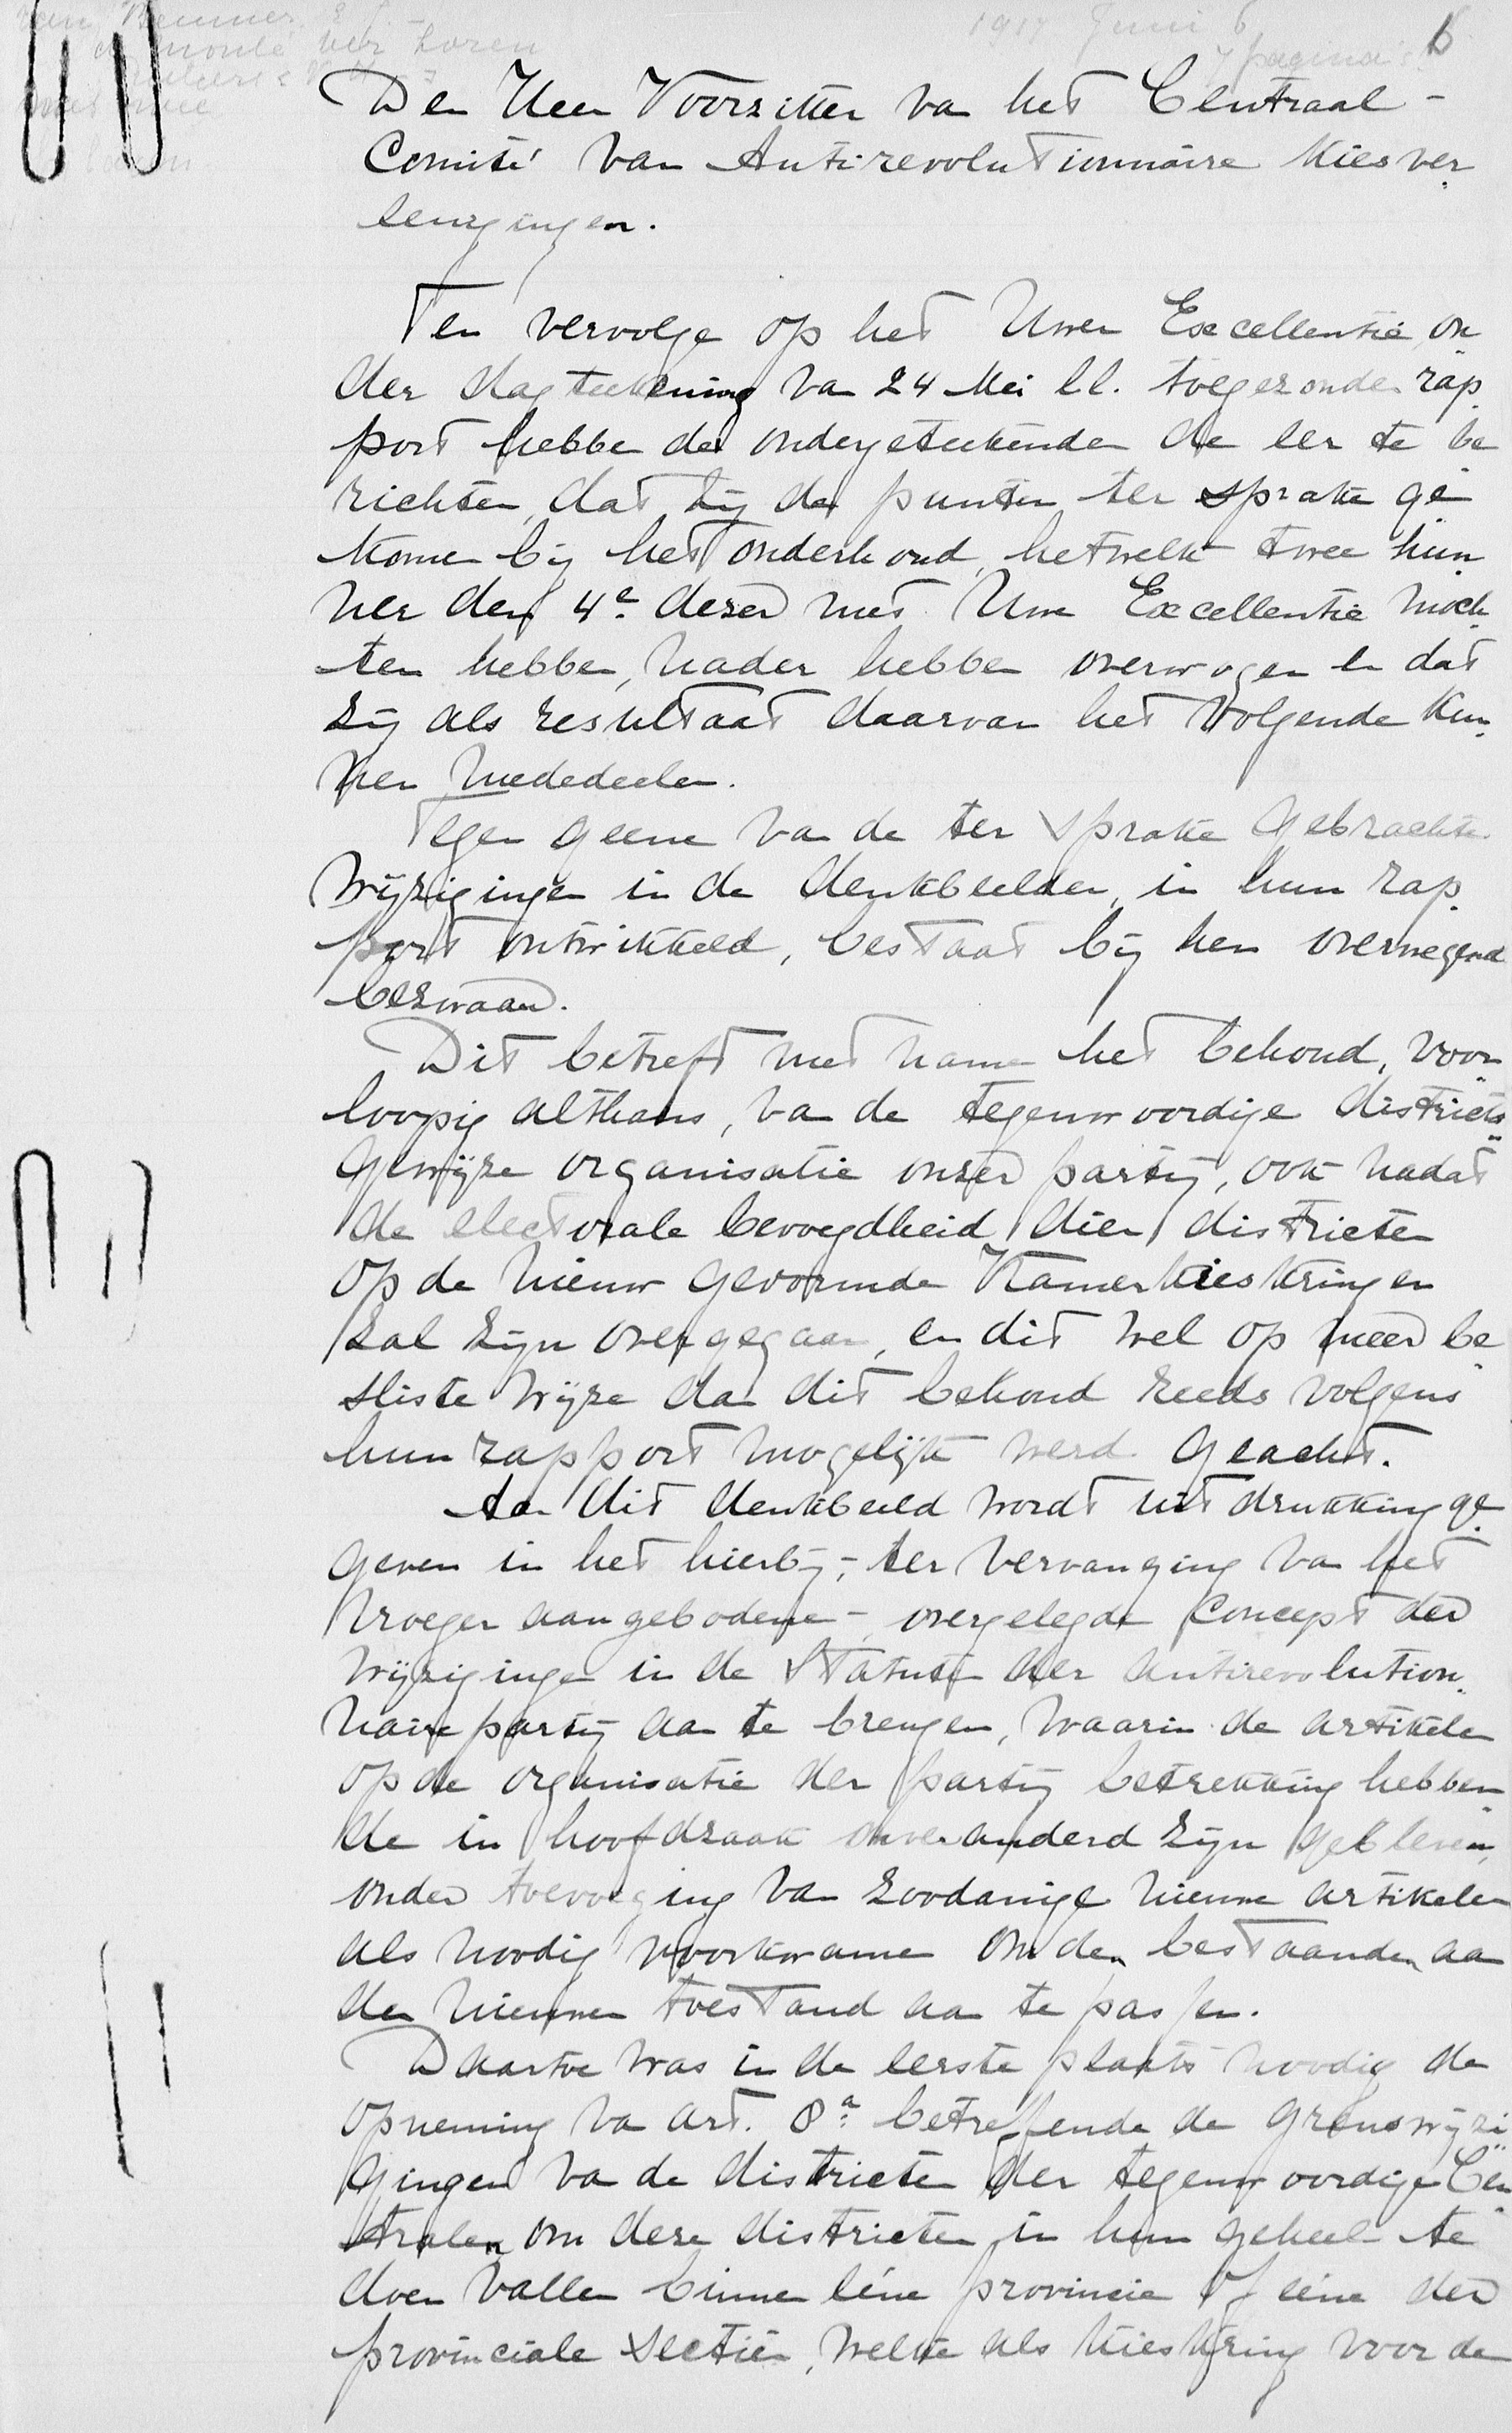 1917 Juni 6
7 pagina's
6
Den Heer Voorzitter van het Centraal-
Comité van Antirevolutionnaire Kiesver
eenigingen.
Ten vervolge op het Uwer Excellentie on
der dagteekening van 24 Mei ll. toegezonden rap
port hebben de ondergeteekenden de eer te be
richten, dat zij de punten ter sprake ge
komen bij het onderhoud, hetwelk twee hun
ner den 4e dezer met Uwe Excellentie moch
ten hebben, nader hebben overwogen en dat
zij als resultaat daarvan het volgende kun
nen mededeelen.
Tegen geene van de ter sprake gebrachte
wijzigingen in de denkbeelden, in hun rap
port ontwikkeld, bestaat bij hen overwegend
bezwaar.
Dit betreft met name het behoud, voor
loopig althans, van de tegenwoordige districts
gewijze organisatie onzer partij, ook nadat
de electorale bevoegdheid dier districten
op de nieuw gevormde Kamerkieskringen
zal zijn overgegaan, en dit wel op meer be
sliste wijze dan dit behoud reeds volgens
hun rapport mogelijk werd geacht.
Aan dit denkbeeld wordt uitdrukking ge
geven in het hierbij, - ter vervanging van het
vroeger aangebodene - overgelegde concept der
wijzigingen in de Statuten der antirevolution
naire partij aan te brengen, waarin de artikelen
op de organisatie der partij betrekking hebben
de in hoofdzaak onveranderd zijn gebleven,
onder toevoeging van zoodanige nieuwe artikelen
als noodig voorkwamen om den bestaanden aan
den nieuwen toestand aan te passen.
Daartoe was in de eerste plaats noodig de
opneming van art. 8a betreffende de grenswijzi
gingen van de districten der tegenwoordige Cen
tralen om deze districten in hun geheel te
doen vallen binnen ééne provincie of ééne der
provinciale sectiën, welke als kieskring voor de